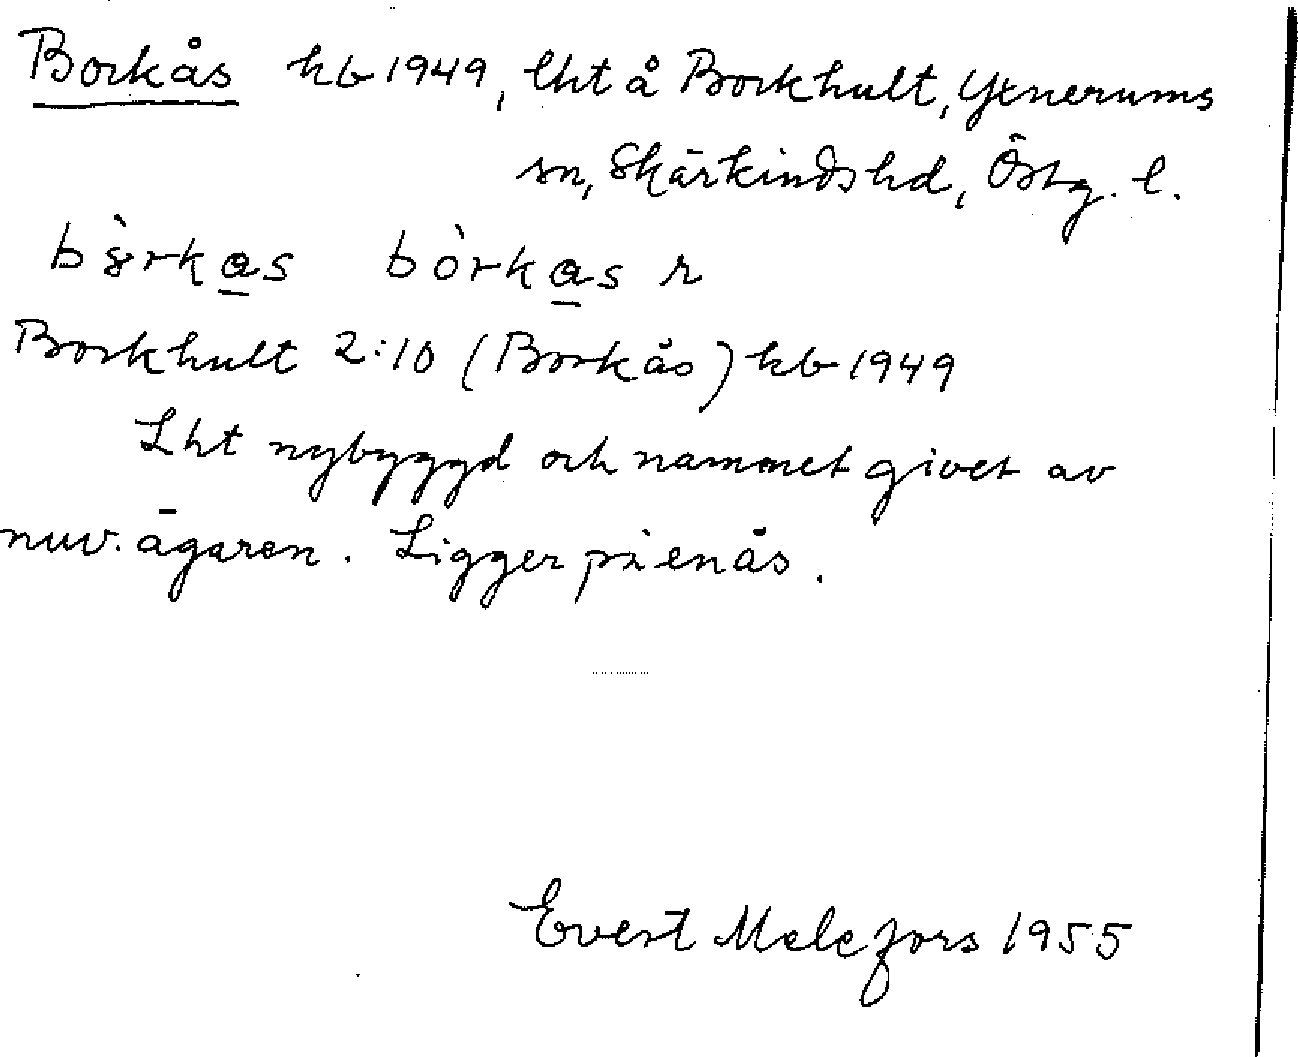 Borkås kb 1949, lht å Borkhult, Yxnerums
sn, Skärkinds hd, Östg. l.
bòrkas r
Borkhult 2:10 (Borkås) kb 1949
Lht nybyggd och namnet givet av
nuv. ägaren. Ligger på en ås.
Evert Melefors 1955